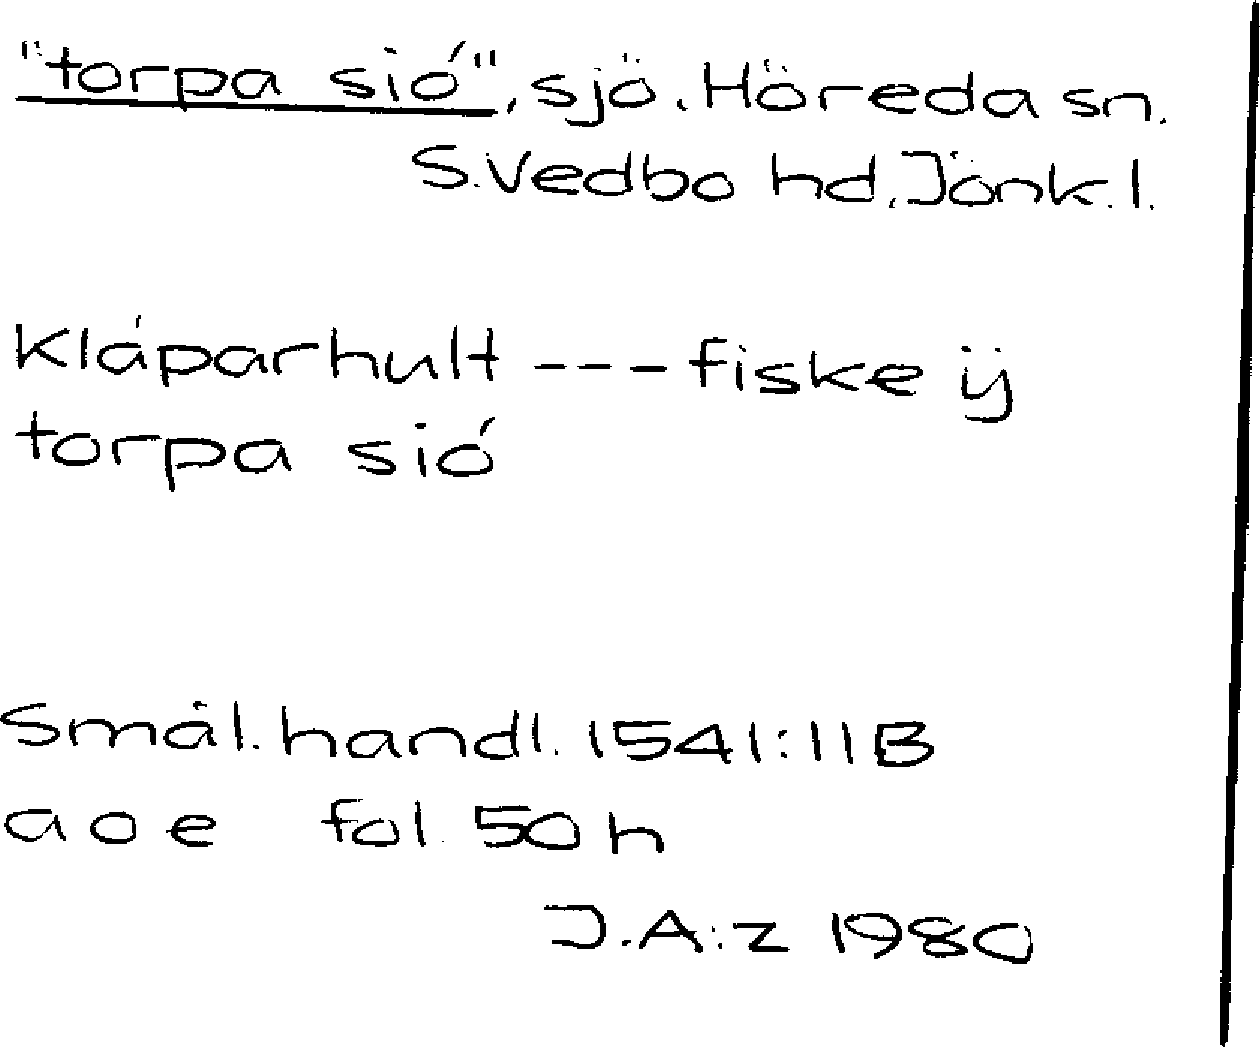 "torpa sió", sjö. Höreda sn.
S. Vedbo hd. Jönk. l.
Kláparhult --- fiske ij
torpa sió
Smål. handl. 1541:11B
a o e fol. 50 h
J.A:z 1980